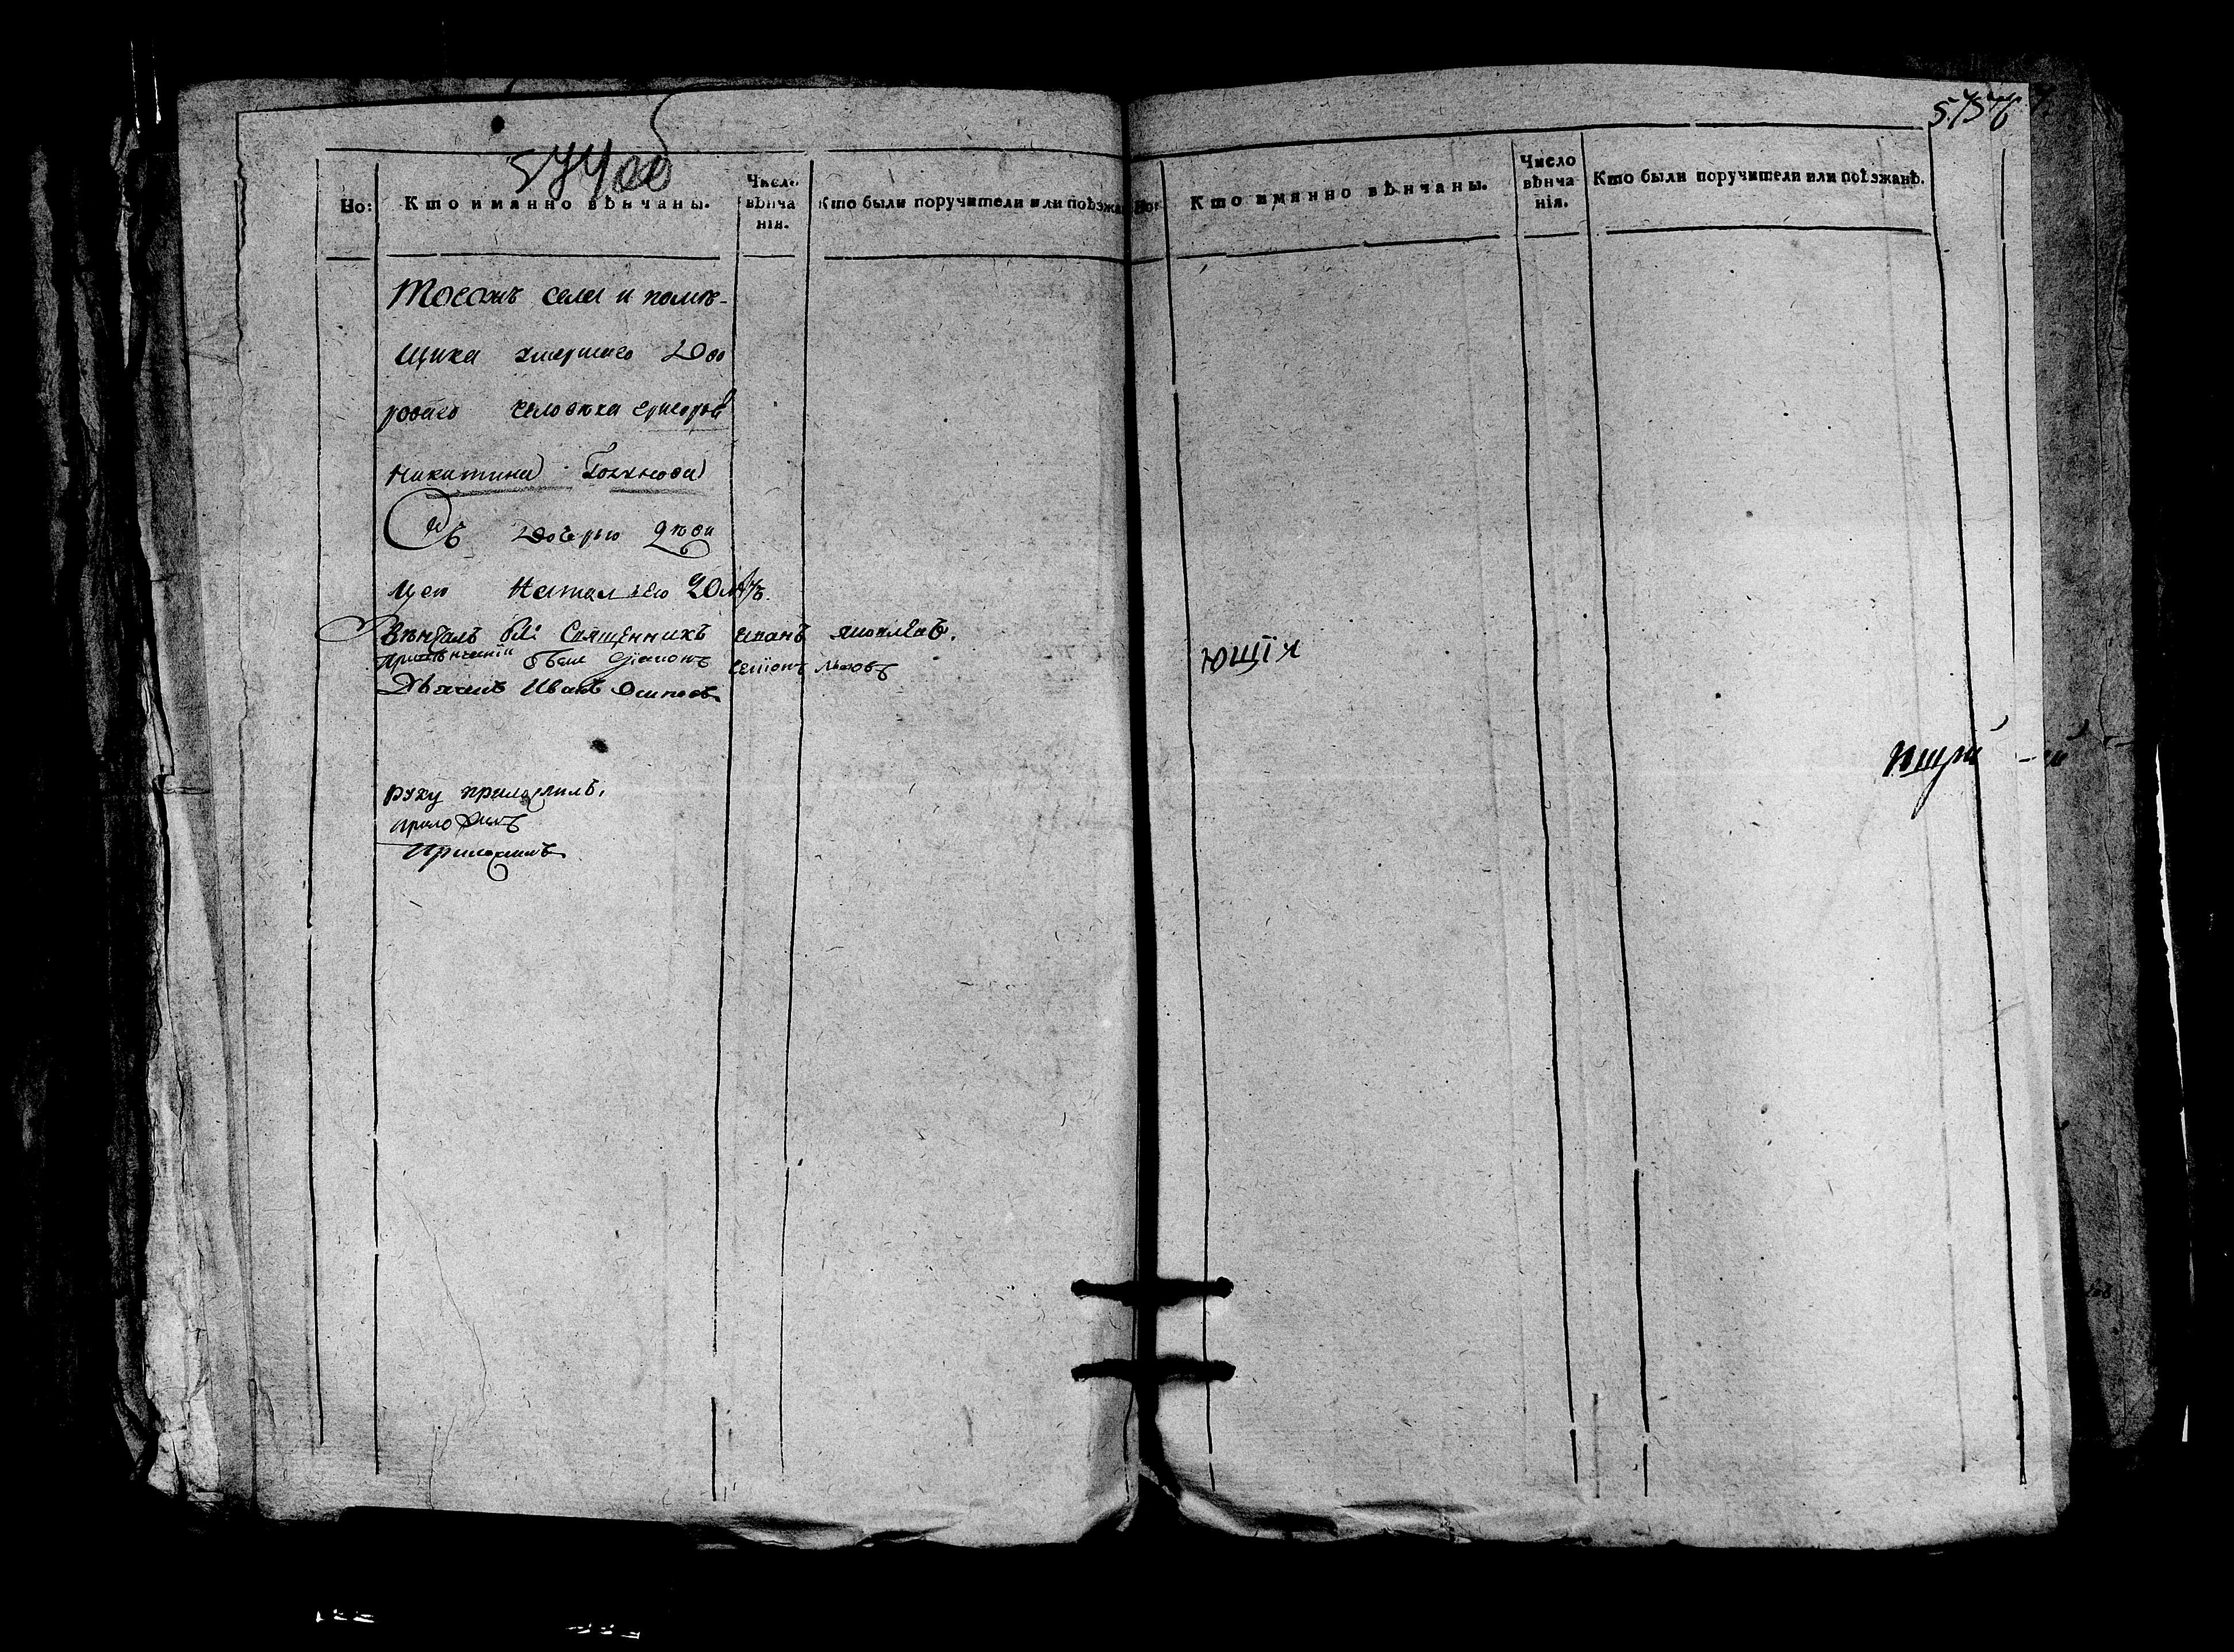 574 об
Но:
Кто имянно вѣнчаны.
Число вѣнча нія.
Кто были поручители или поѣзжа
Тогожъ села и помѣ-
щика умершаго Дво
роваго человѣка Григорья
Никитина
Съ дочерью дѣви
цею Наталіею 20 лѣтъ.
Вѣнчалъ Священникъ Иванъ Яковлевъ.
были Діаконъ
Дьячекъ Иванъ Осиповъ
руку приложилъ.
приложилъ
приложилъ
575
Но:
Кто имянно вѣнчаны.
Число вѣнча нія.
Кто были поручители или поѣзжанѣ.
ющія